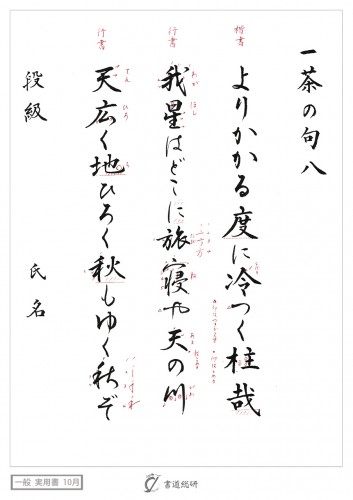 一茶の句八
楷書
よりかかる度に冷つく柱哉
行書
我星はどこに旅寝や天の川
行書
天広く地ひろく秋もゆく秋ぞ
段級 氏名
一般 実用書 10月
書道総研